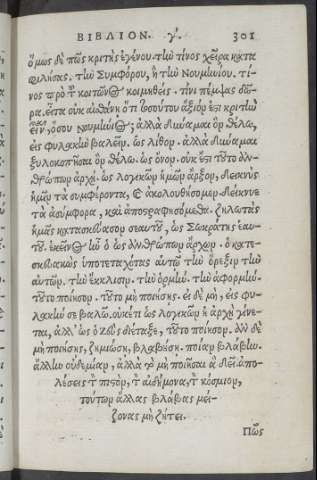 ΒΙΒΛΙΟΝ. γ´. 301
ὅμως δὲ πῶς κριτὴς ἐγένου. τὴν τίνος χεῖρα κατα
φιλήσας. τὴν Συμφόρου, ἢ τὴν Νουμηνίου. τί-
νος πρὸ τοῦ κοιτῶνος κοιμηθείς. τίνι πέμψας δῶ-
ρα. εἶτα οὐκ αἰσθάνῃ ὅτι τοσούτου ἄξιόν ἐστι κριτὴν
εἶναι, ὅσου Νουμήνιος; ἀλλὰ δύναμαι ὃν θέλω,
εἰς φυλακὴν βαλεῖν. ὡς λίθον. ἀλλὰ δύναμαι
ξυλοκοπῆσαι ὃν θέλω. ὡς ὄνον. οὐκ ἔστι τοῦτο ἀν-
θρώπων ἀρχή. ὡς λογικῶν ἡμῶν ἄρξον, δεικνὺς
ἡμῖν τὰ συμφέροντα, καὶ ἀκολουθήσομεν. δείκνυε
τὰ ἀσύμφορα, καὶ ἀποστραφησόμεθα. ζηλωτὰς
ἡμᾶς κατασκεύασον σεαυτοῦ, ὡς Σωκράτης ἑαυ-
τοῦ. ἐκεῖνος ἦν ὁ ὡς ἀνθρώπων ἄρχων. ὁ κατε-
σκευακὼς ὑποτεταχότας αὐτῷ τὴν ὄρεξιν τὴν
αὐτῶν. τὴν ἔκκλισιν. τὴν ὁρμήν. τὴν ἀφορμήν.
τοῦτο ποίησον. τοῦτο μὴ ποιήσῃς. εἰ δὲ μή, εἰς φυ-
λακήν σε βαλῶ. οὐκέτι ὡς λογικῶν ἡ ἀρχὴ γίνε-
ται, ἀλλ' ὡς ὁ ζεὺς διέταξε, τοῦτο ποίησον. ἂν δὲ
μὴ ποιήσῃς, ζημιώσῃ, βλαβήσῃ. ποίαν βλάβην.
ἄλλην οὐδεμίαν, ἀλλὰ τὸ μὴ ποιῆσαι ἃ δεῖ. ἀπο-
λέσεις τὸν πιστὸν, τὸν αἰδήμονα, τὸν κόσμιον,
τούτων ἄλλας βλάβας μεί-
ζονας μὴ ζήτει.
Πῶς